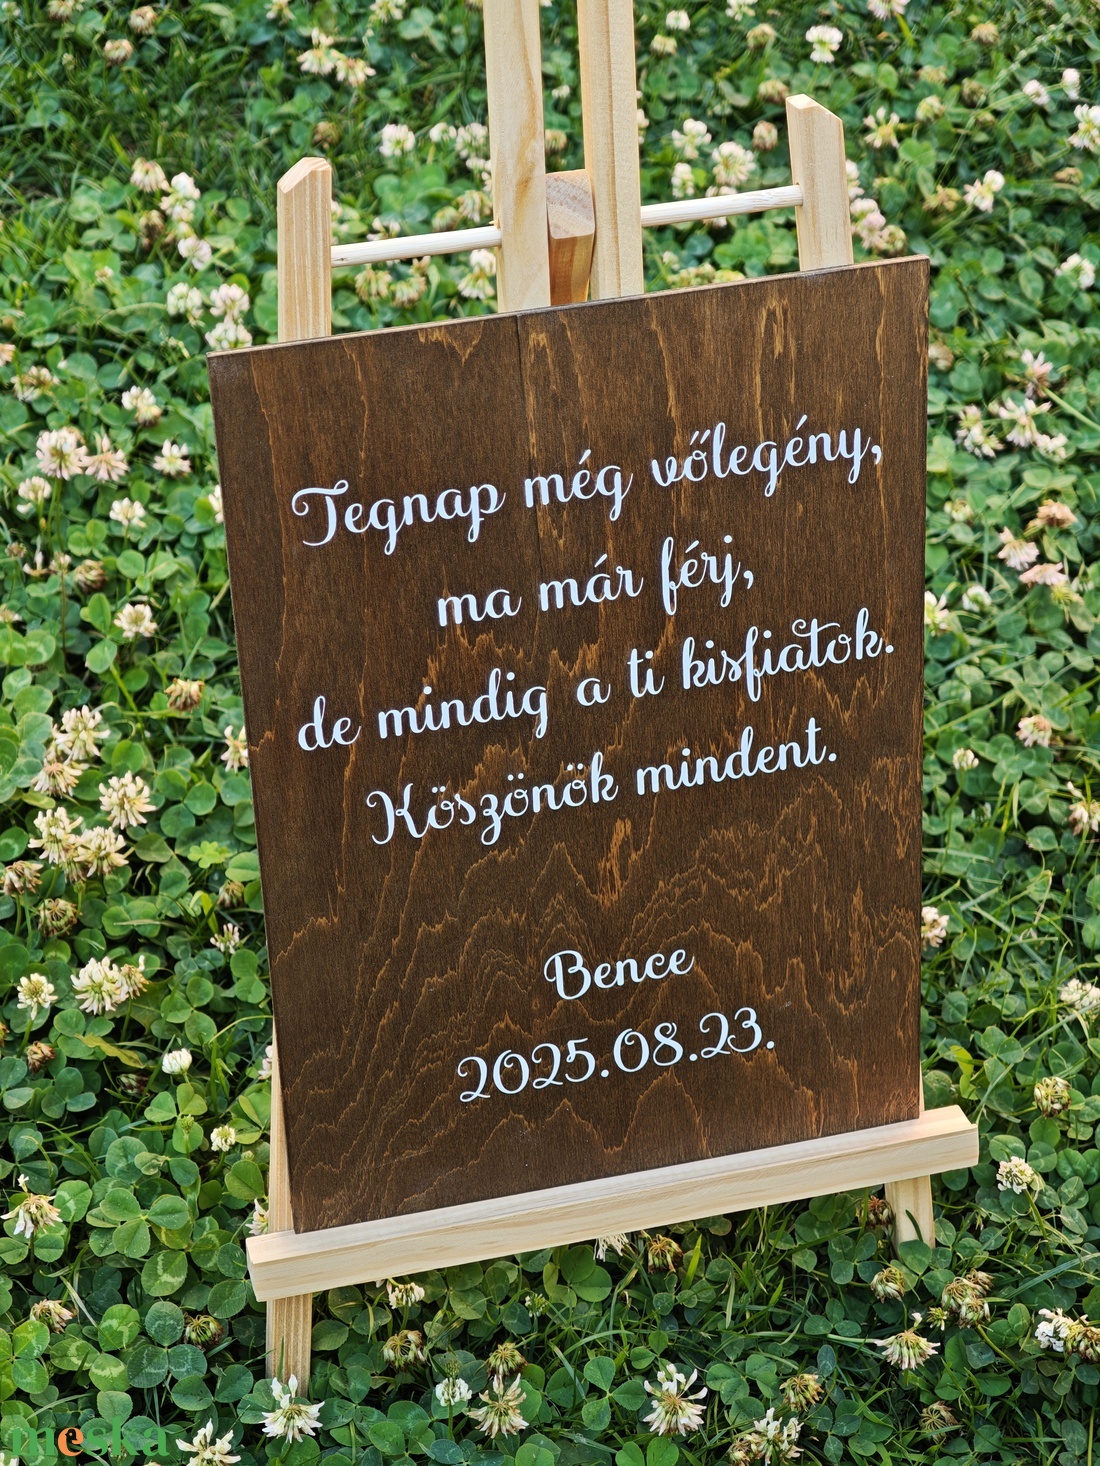 Tegnap még vőlegény,
ma már férj,
de mindig a ti kisfiatok.
Köszönök mindent.
Bence
2025.08.23.
meska